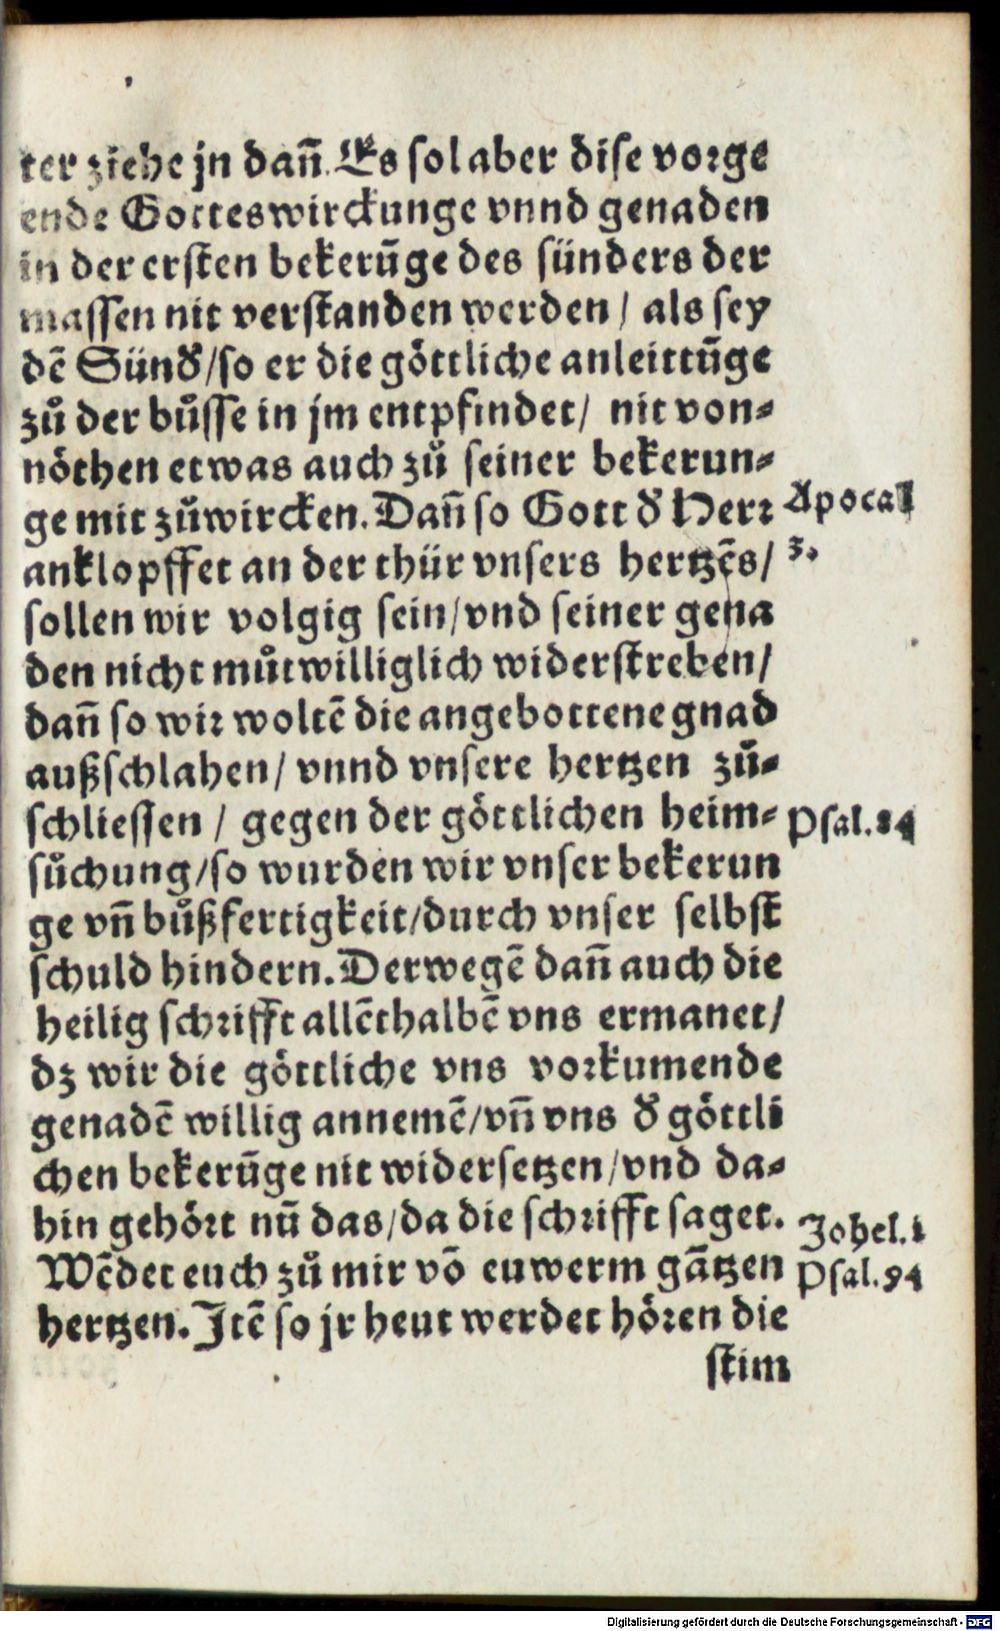 ter ziehe jn dañ. Es sol aber dise vorge
ende Gottes wirckunge vnnd genaden
in der ersten bekerūge des sünders der
massen nit verstanden werden / als sey
dē Sünd̕ /so er die göttliche anleittūge
zů der bůsse in jm entpfindet/ nit von⸗
nöthen etwas auch zů seiner bekerun⸗
ge mit zůwircken. Dañ so Gott d̕ Herr
anklopffet an der thür vnsers hertzēs/
sollen wir volgig sein/vnd seiner gena
den nicht můtwilliglich widerstreben/
dañ so wir woltē die angebottene gnad
außschlahen/ vnnd vnsere hertzen zů⸗
schliessen / gegen der göttlichen heim⸗
sůchung/so wurden wir vnser bekerun
ge vñ bůßfertigkeit/durch vnser selbst
schuld hindern. Derwegē dañ auch die
heilig schrifft allēthalbē vns ermanet/
dz wir die göttliche vns vorkumende
genadē willig annemē/vñ vns d̕ göttli
chen bekerūge nit widersetzen/vnd da⸗
hin gehört nū das/da die schrifft saget.
Wēdet euch zů mir vō euwerm gātzen
hertzen. Itē so jr heut werdet hören die
stim
Apocal
3.
Psal.84
Johel.2
Psal.94
Digitalisierung gefördert durch die Deutsche Forschungsgemeinschaft - DFG